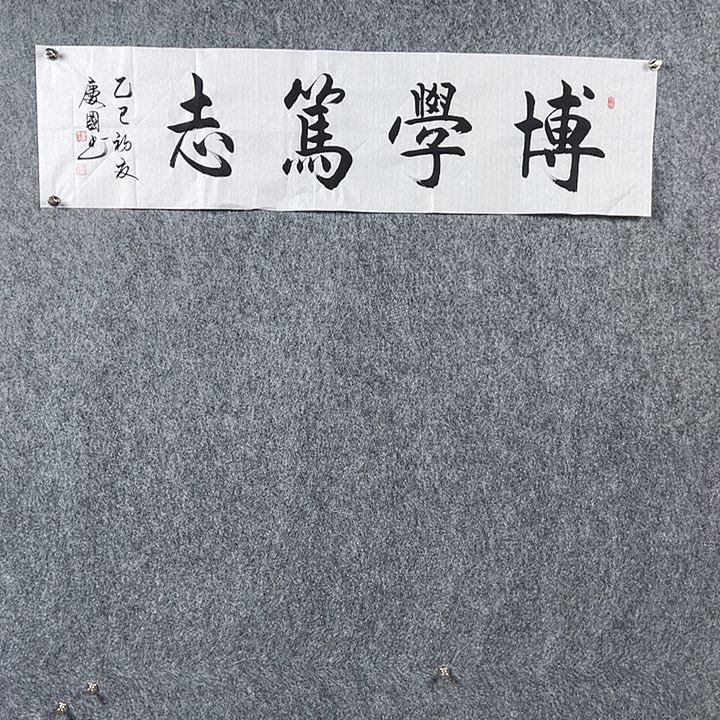 博學篤志
乙巳初夏
慶國书